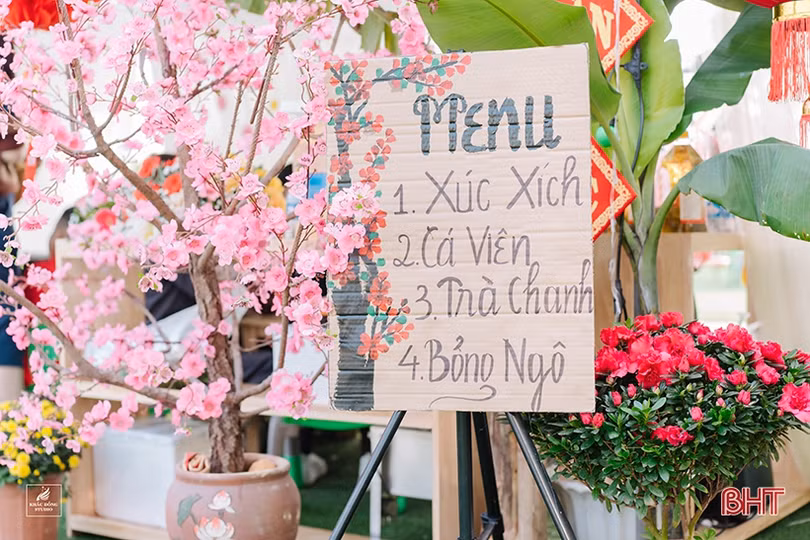 MENU
1. Xúc Xích
2. Cá Viên
3. Trà Chanh
4. Bỏng Ngô
KHẮC ĐÔNG
STUDIO
BHT